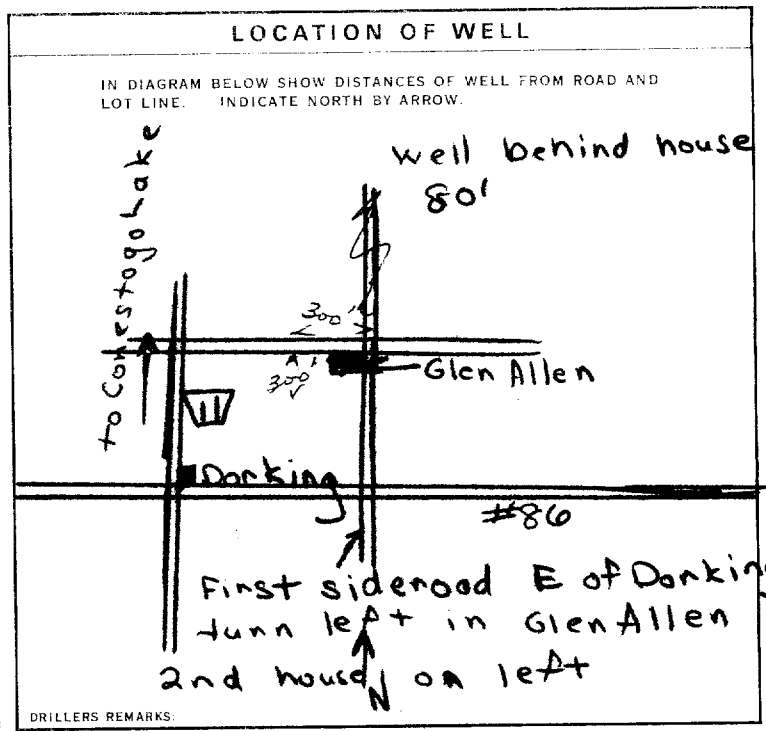 LOCATION OF WELL
IN DIAGRAM BELOW SHOW DISTANCES OF WELL FROM ROAD AND
LOT LINE. INDICATE NORTH BY ARROW.
well behind house
80'
to Conestogo Lake
300'
300'
Glen Allen
Dorking
#86
First sideroad E of Dorking
turn left in Glen Allen
2nd house on left
N
DRILLERS REMARKS: